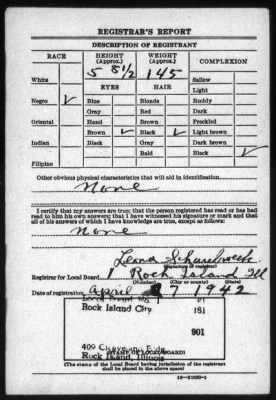 REGISTRAR'S REPORT
DESCRIPTION OF REGISTRANT
RACE HEIGHT (Approx.) WEIGHT (Approx.) COMPLEXION
5 8½ 145
White Sallow
EYES HAIR Light
Negro ✓ Blue Blonde Ruddy
Gray Red Dark
Oriental Hazel Brown Freckled
Brown ✓ Black ✓ Light brown
Indian Black Gray Dark brown
Bald Black ✓
Filipino
Other obvious physical characteristics that will aid in identification
None
I certify that my answers are true; that the person registered has read or has had
read to him his own answers; that I have witnessed his signature or mark and that
all of his answers of which I have knowledge are true, except as follows:
None
Leona
(Signature of registrar)
Registrar for Local Board 1 Rock Island Ill
(Number) (City or county) (State)
Date of registration April 27 1942
Rock Island City 161
901
409
Rock Island, Illinois
(STAMP OF LOCAL BOARD)
(The stamp of the Local Board having jurisdiction of the registrant
shall be placed in the above space)